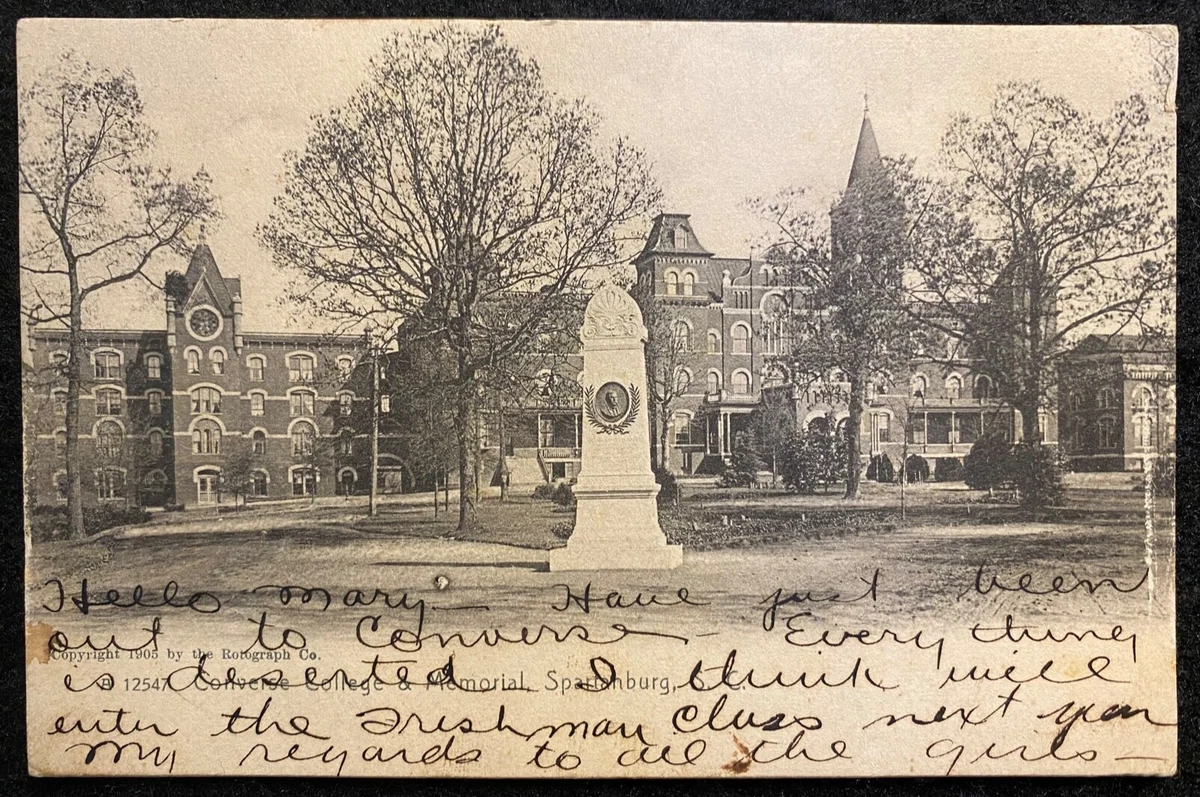 Hello Mary— Have just been
out to Converse— Every thing
Copyright 1905 by the Rotograph Co.
is deserted I think will
A 12547 Converse College & Memorial, Spartanburg, S. C.
enter the Freshman Class next year
My regards to all the girls—